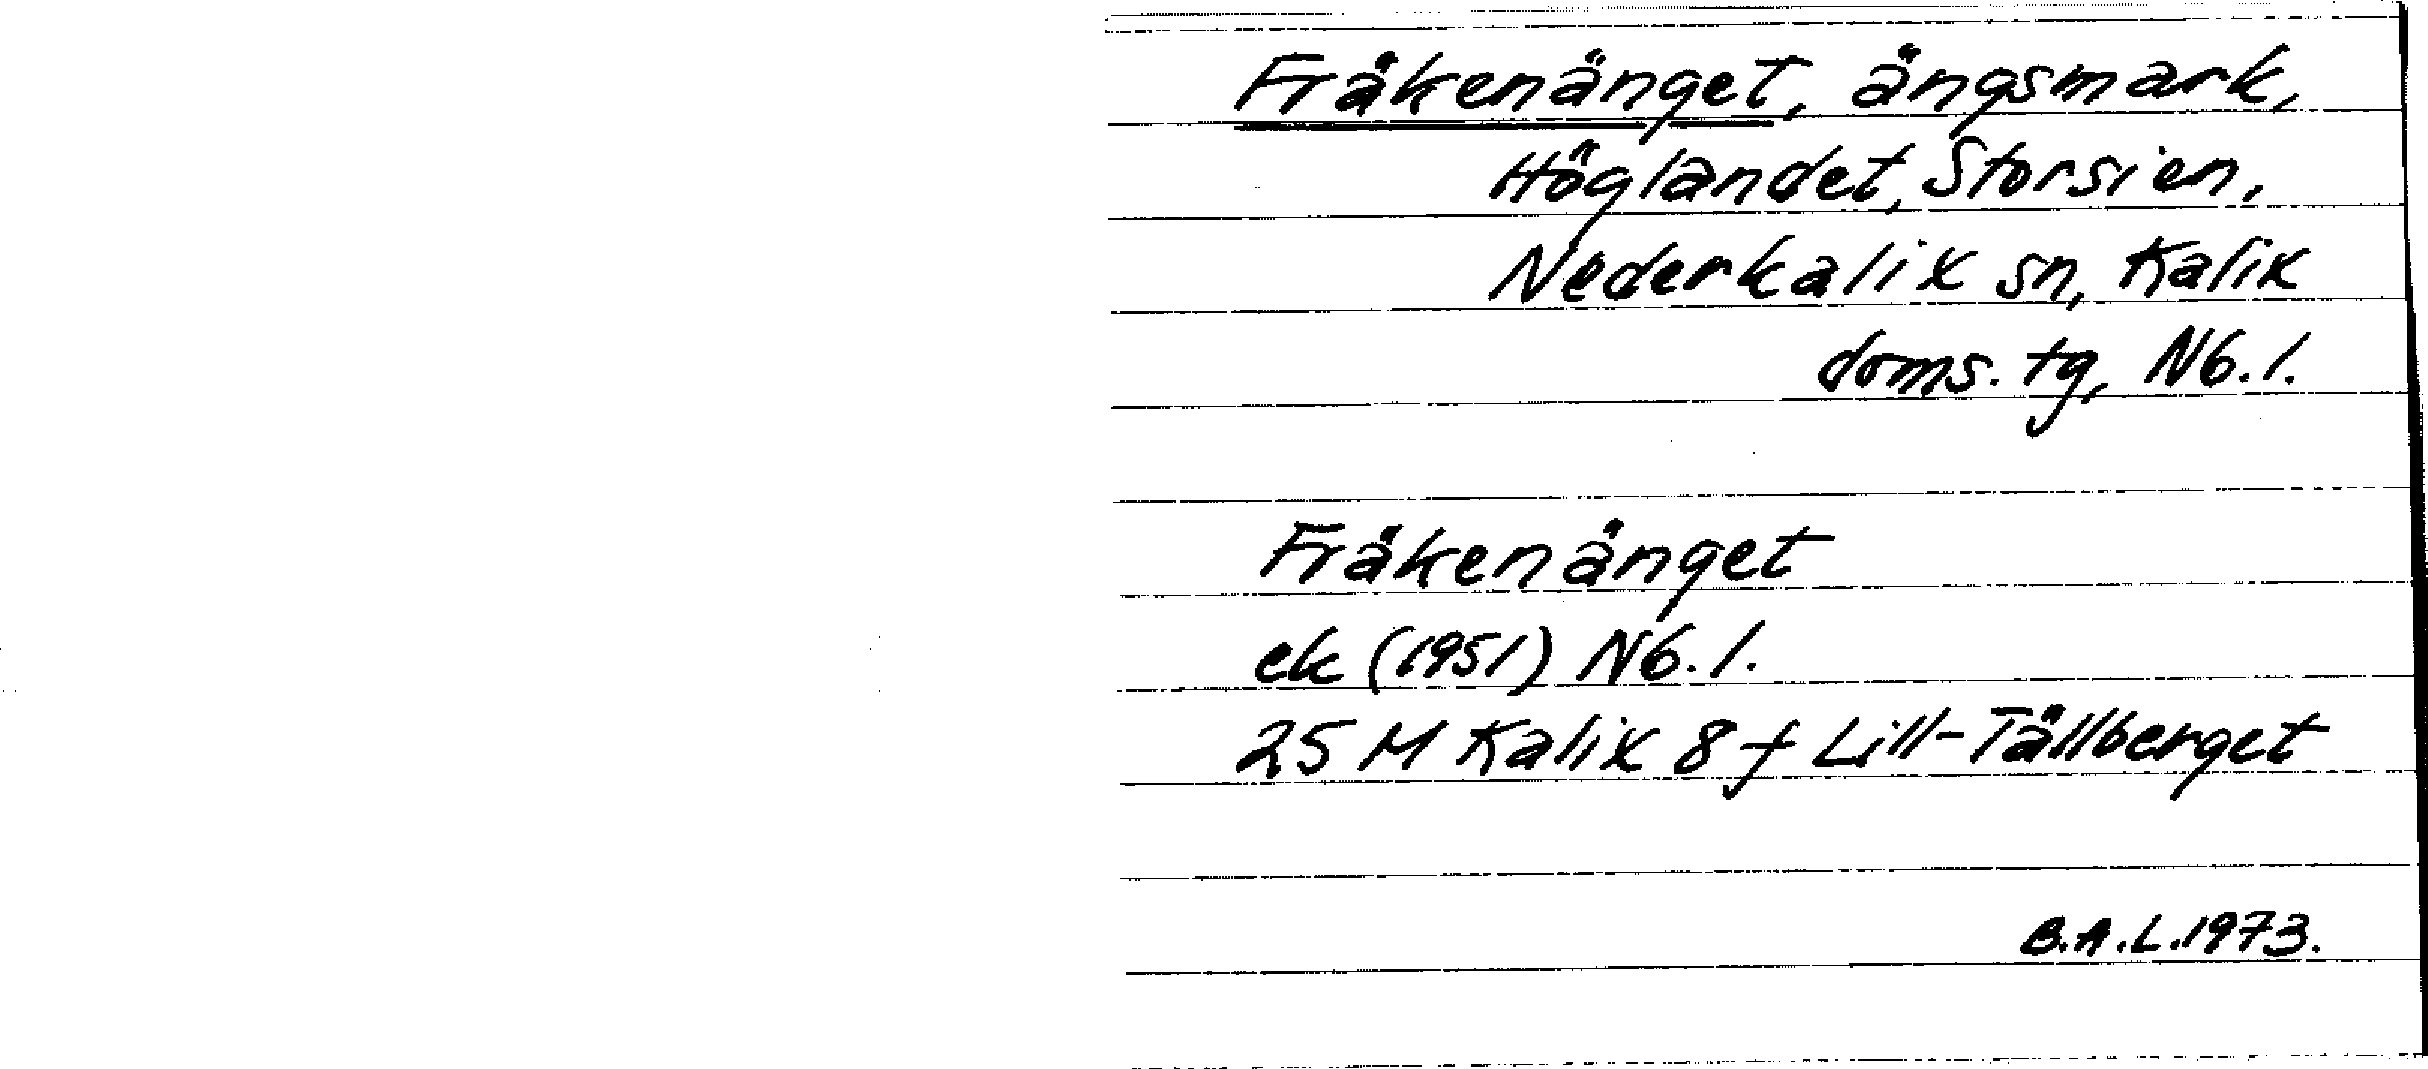 Fräkenänget, ängsmark,
Höglandet, Storsien,
Nederkalix sn, Kalix
doms. tg, Nb. l.
Fräkenänget
ek (1951) Nb. l.
25 M Kalix 8 f Lill-Tällberget
B.A.L. 1973.